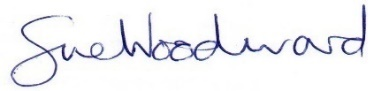 Sue Woodward